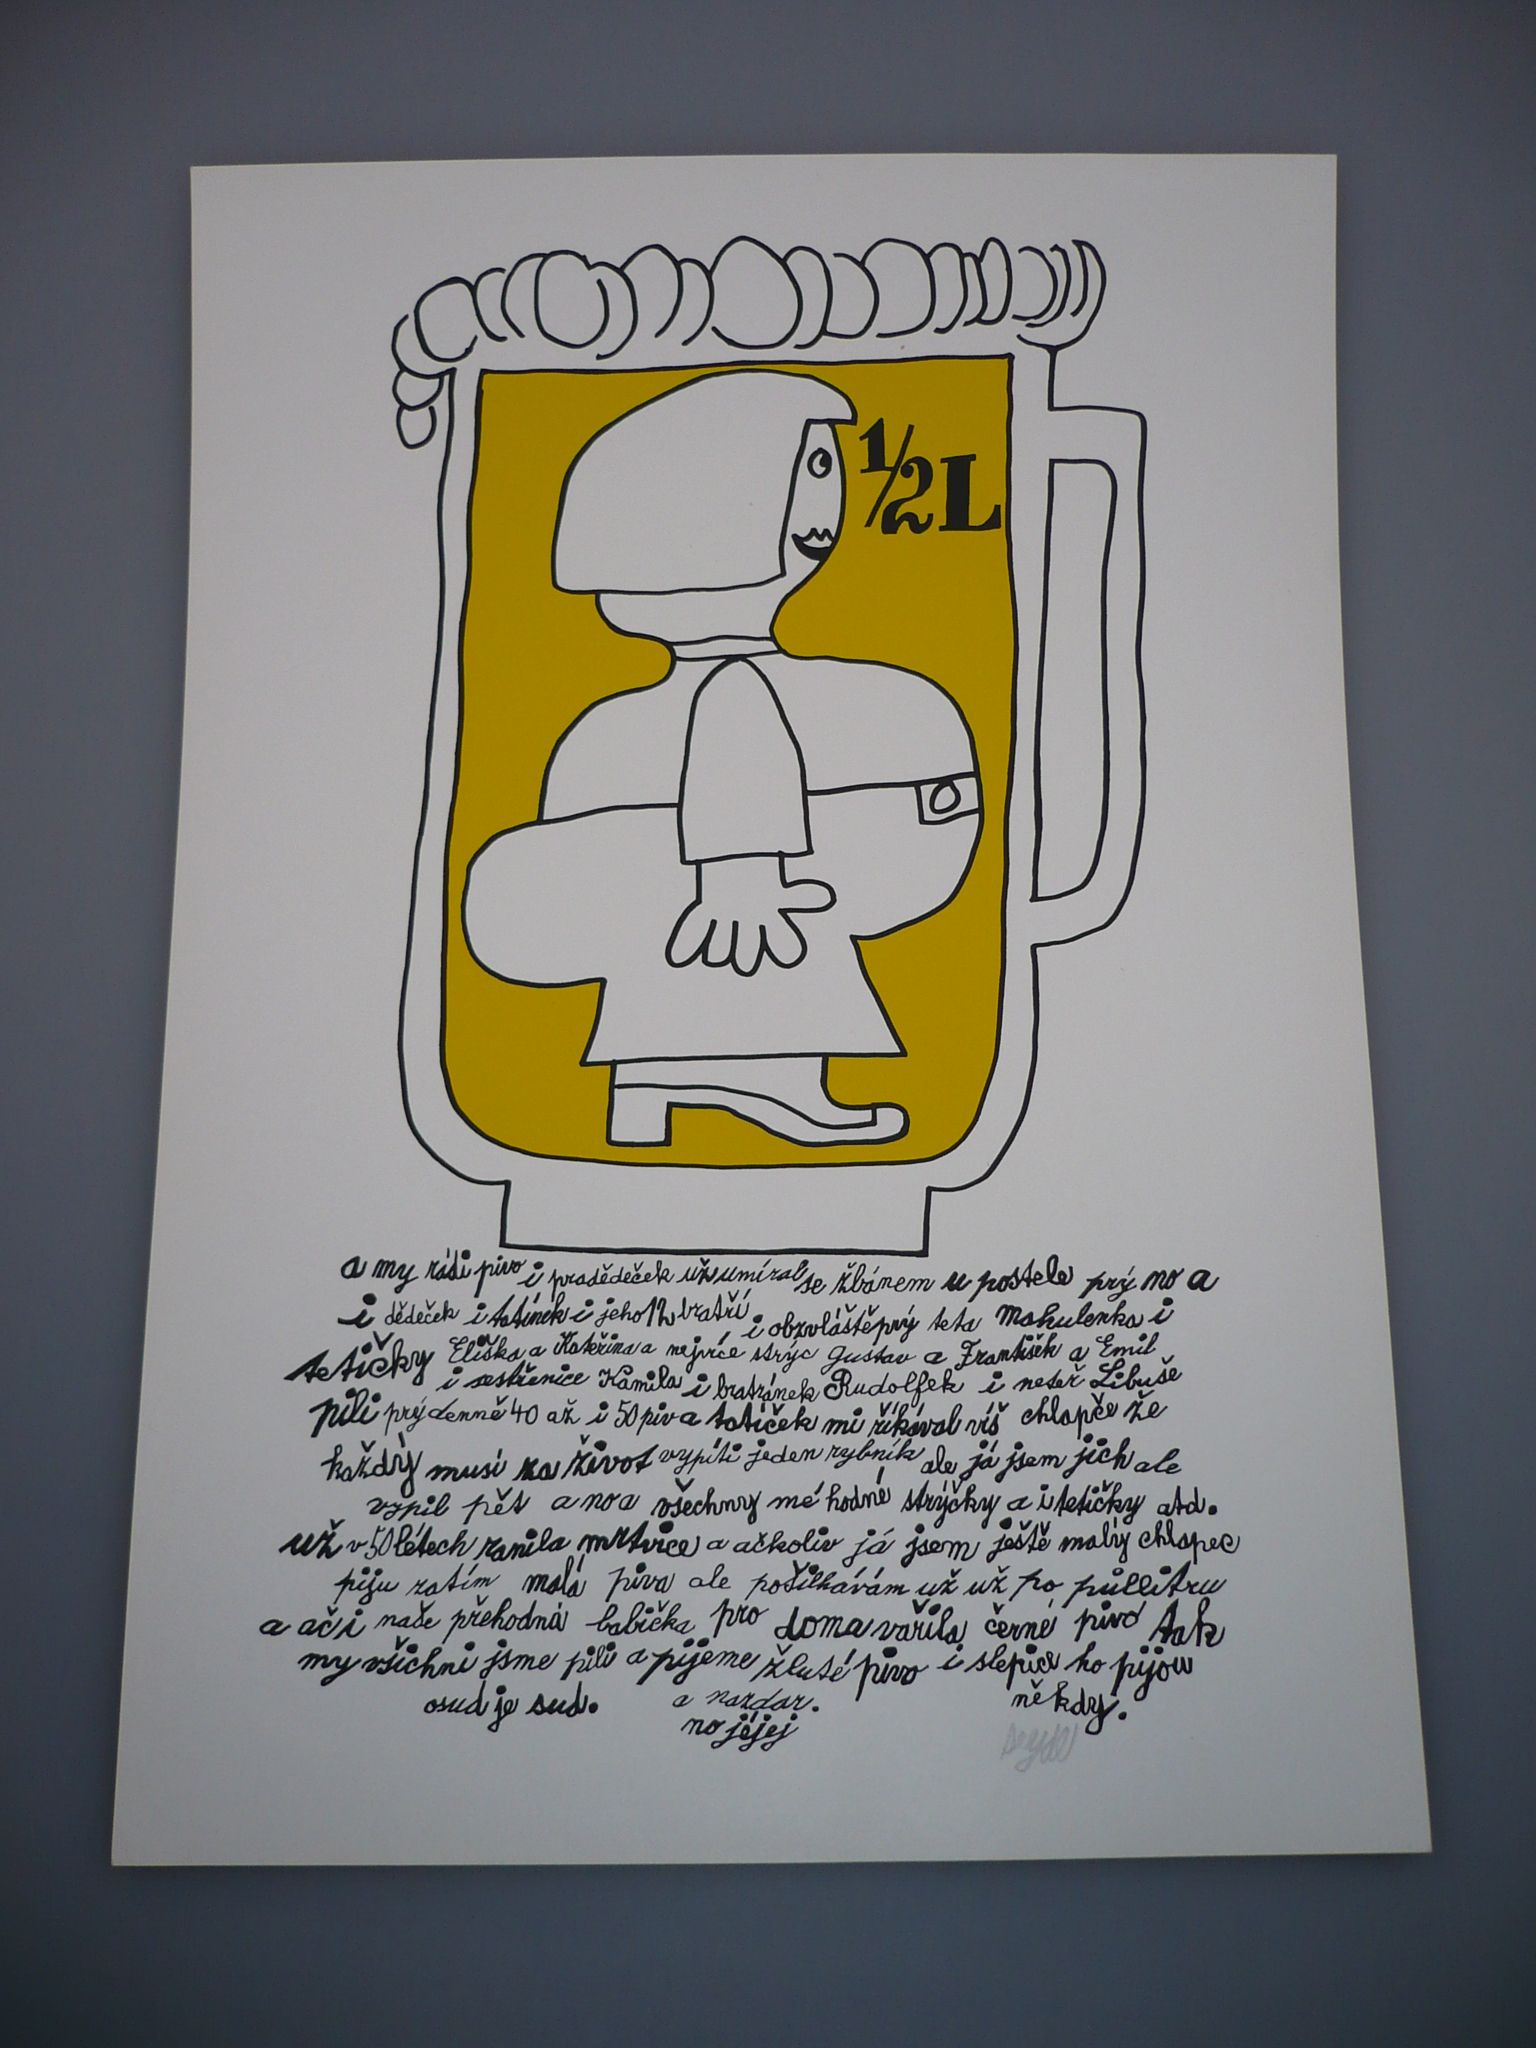 1/2L
a my rádi pivo i pradědeček už umíral se žbánem u postele prý no a
i dědeček i tatínek i jeho 12 bratří i obzvláště prý teta Mahulenka i
tetičky Eliška a Kateřina a nejvíce strýc Gustav a František a Emil
i sestřenice Kamila i bratránek Rudolfek i neteř Libuše
pili prý denně 40 až i 50 piv a tatíček mi říkával víš chlapče že
každý musí za život vypíti jeden rybník ale já jsem jich ale
vypil pět a no a všechny mé hodné strýčky a i tetičky atd.
už v 50 létech ranila mrtvice a ačkoliv já jsem ještě malý chlapec
piju zatím malá piva ale pošilhávám už už po půllitru
a ač i naše přehodná babička pro doma vařila černé pivo tak
my všichni jsme pili a pijeme žluté pivo i slepice ho pijou
osud je sud. a nazdar. někdy.
no jéjej